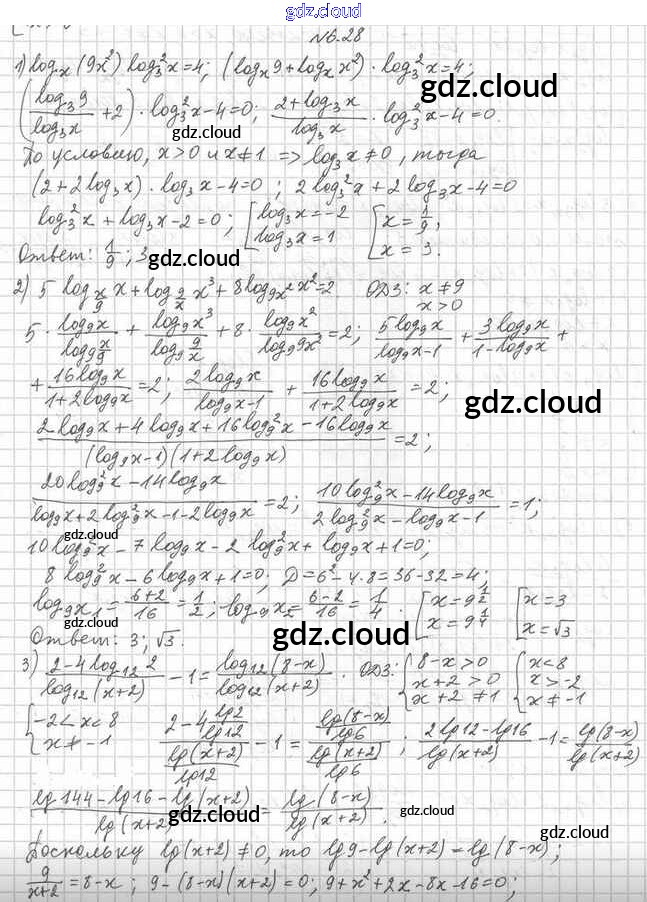 gdz.cloud
№6.28
1) log_x (9x²) log₃²x=4; (log_x 9 + log_x x²) · log₃²x=4;
gdz.cloud
(log₃9 / log₃x + 2) · log₃²x-4=0; (2+log₃x) / log₃x · log₃²x-4=0.
gdz.cloud
По условию, x>0 и x≠1 => log₃x≠0, тогда
(2+2log₃x) · log₃x-4=0; 2log₃²x+2log₃x-4=0
log₃²x+log₃x-2=0; [log₃x=-2 log₃x=1 [x=1/9, x=3.
Ответ: 1/9; 3
gdz.cloud
2) 5 log_{x/9} x + log_{9/x} x³ + 8log_{9x²} x²=2 ОДЗ: x≠9 x>0
5 · log₉x / log₉ x/9 + log₉x³ / log₉ 9/x + 8 · log₉x² / log₉9x² =2; 5log₉x / (log₉x-1) + 3log₉x / (1-log₉x) +
+ 16log₉x / (1+2log₉x) =2; 2log₉x / (log₉x-1) + 16log₉x / (1+2log₉x) =2;
gdz.cloud
(2log₉x+4log₉x+16log₉²x-16log₉x) / (log₉x-1)(1+2log₉x) =2;
(20log₉²x-14log₉x) / (log₉x+2log₉²x-1-2log₉x) =2; (10log₉²x-14log₉x) / (2log₉²x-log₉x-1) =1;
gdz.cloud
10log₉²x-7log₉x-2log₉²x+log₉x+1=0;
8log₉²x-6log₉x+1=0; D=6²-4·8=36-32=4;
log₉x₁= (6+2)/16 = 1/2; log₉x₂= (6-2)/16 = 1/4. [x=9^{1/2} x=9^{1/4} [x=3 x=√3
Ответ: 3; √3.
gdz.cloud gdz.cloud
3) (2-4log₁₂2) / log₁₂(x+2) -1= log₁₂(8-x) / log₁₂(x+2). ОДЗ: {8-x>0 x+2>0 x+2≠1 {x<8 x>-2 x≠-1
{-2<x<8 x≠-1 (2-4 lg2/lg12) / (lg(x+2)/lg12) -1= (lg(8-x)/lg6) / (lg(x+2)/lg6); (2lg12-lg16) / lg(x+2) -1= lg(8-x) / lg(x+2)
(lg144-lg16-lg(x+2)) / lg(x+2) = lg(8-x) / lg(x+2).
gdz.cloud gdz.cloud
Поскольку lg(x+2)≠0, то lg9-lg(x+2)=lg(8-x);
gdz.cloud
9/(x+2) =8-x; 9-(8-x)(x+2)=0; 9+x²+2x-8x-16=0;
gdz.cloud